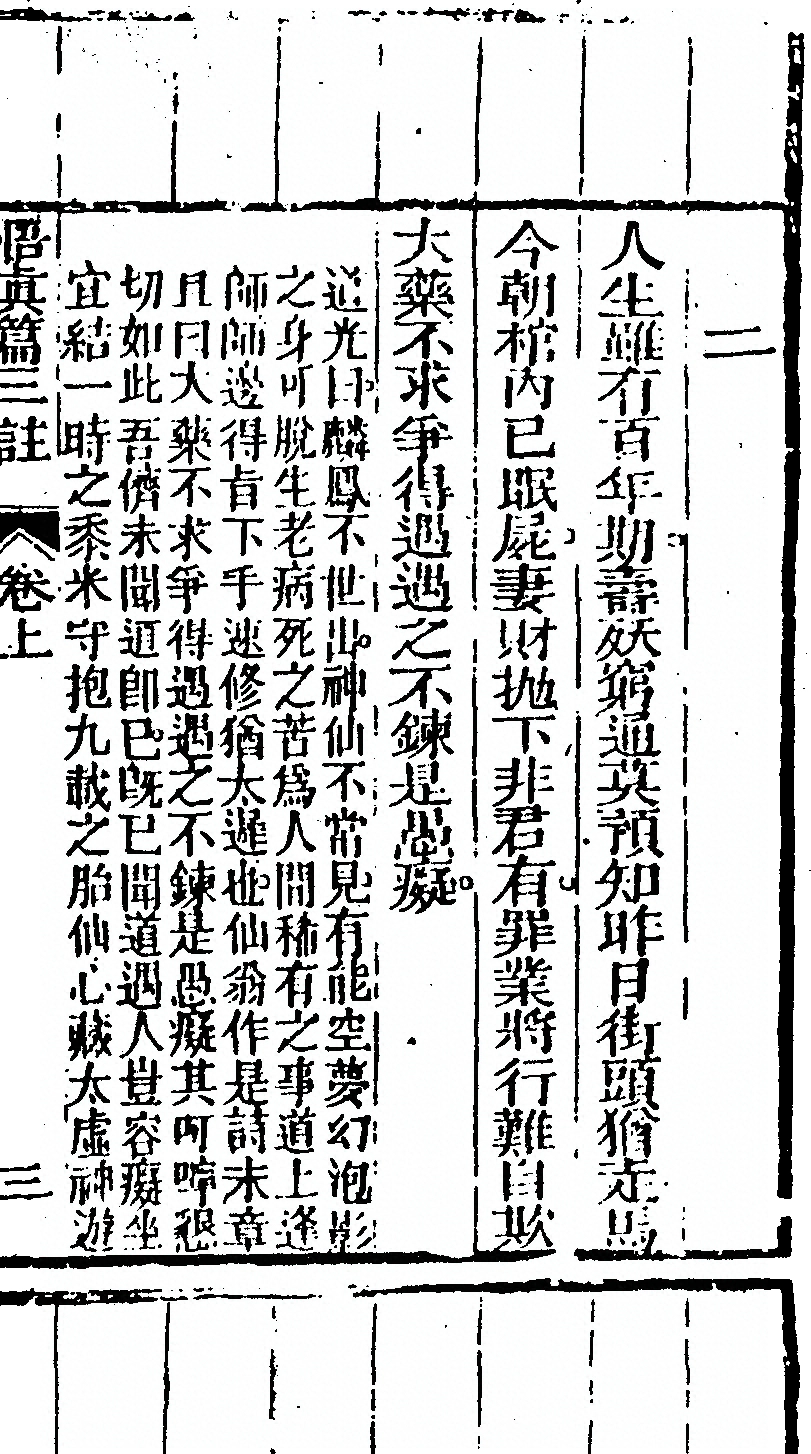 二
人生雖有百年期壽妖窮通莫預知昨日街頭猶走馬
今朝棺內已眠屍妻財拋下非君有罪業將行難自欺
大藥不求爭得遇遇之不鍊是愚癡
道光曰麟鳳不世出神仙不常見有能空夢幻泡影
之身可脫生老病死之苦爲人間稀有之事道上逢
師師邊得旨下手速修猶太遲也仙翁作是詩末章
且曰大藥不求爭得遇遇之不鍊是愚癡其叮嚀懇
切如此吾儕未聞道卽已旣已聞道遇人豈容癡坐
宜結一時之黍米守抱九載之胎仙心賊太虛神遊
悟眞篇三註 卷上 三